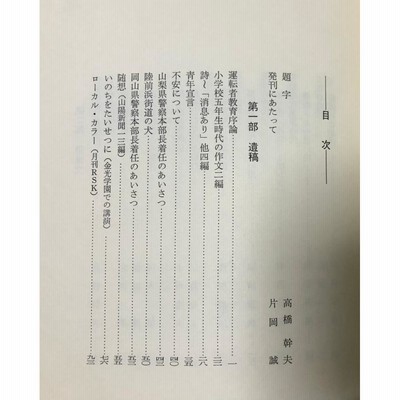 目次
題字 高橋幹夫
発刊にあたって 片岡誠
第一部 遺稿
運転者教育序論……一
小学校五年生時代の作文二編……
詩～「消息あり」他四編……
青年宣言……三五
不安について……四〇
山梨県警察本部長着任のあいさつ……四三
陸前浜街道の犬……五〇
岡山県警察本部長着任のあいさつ……五三
随想（山陽新聞一三編）……五五
いのちをたいせつに（金光学園での講演）……七六
ローカル・カラー（月刊RSK）……九三